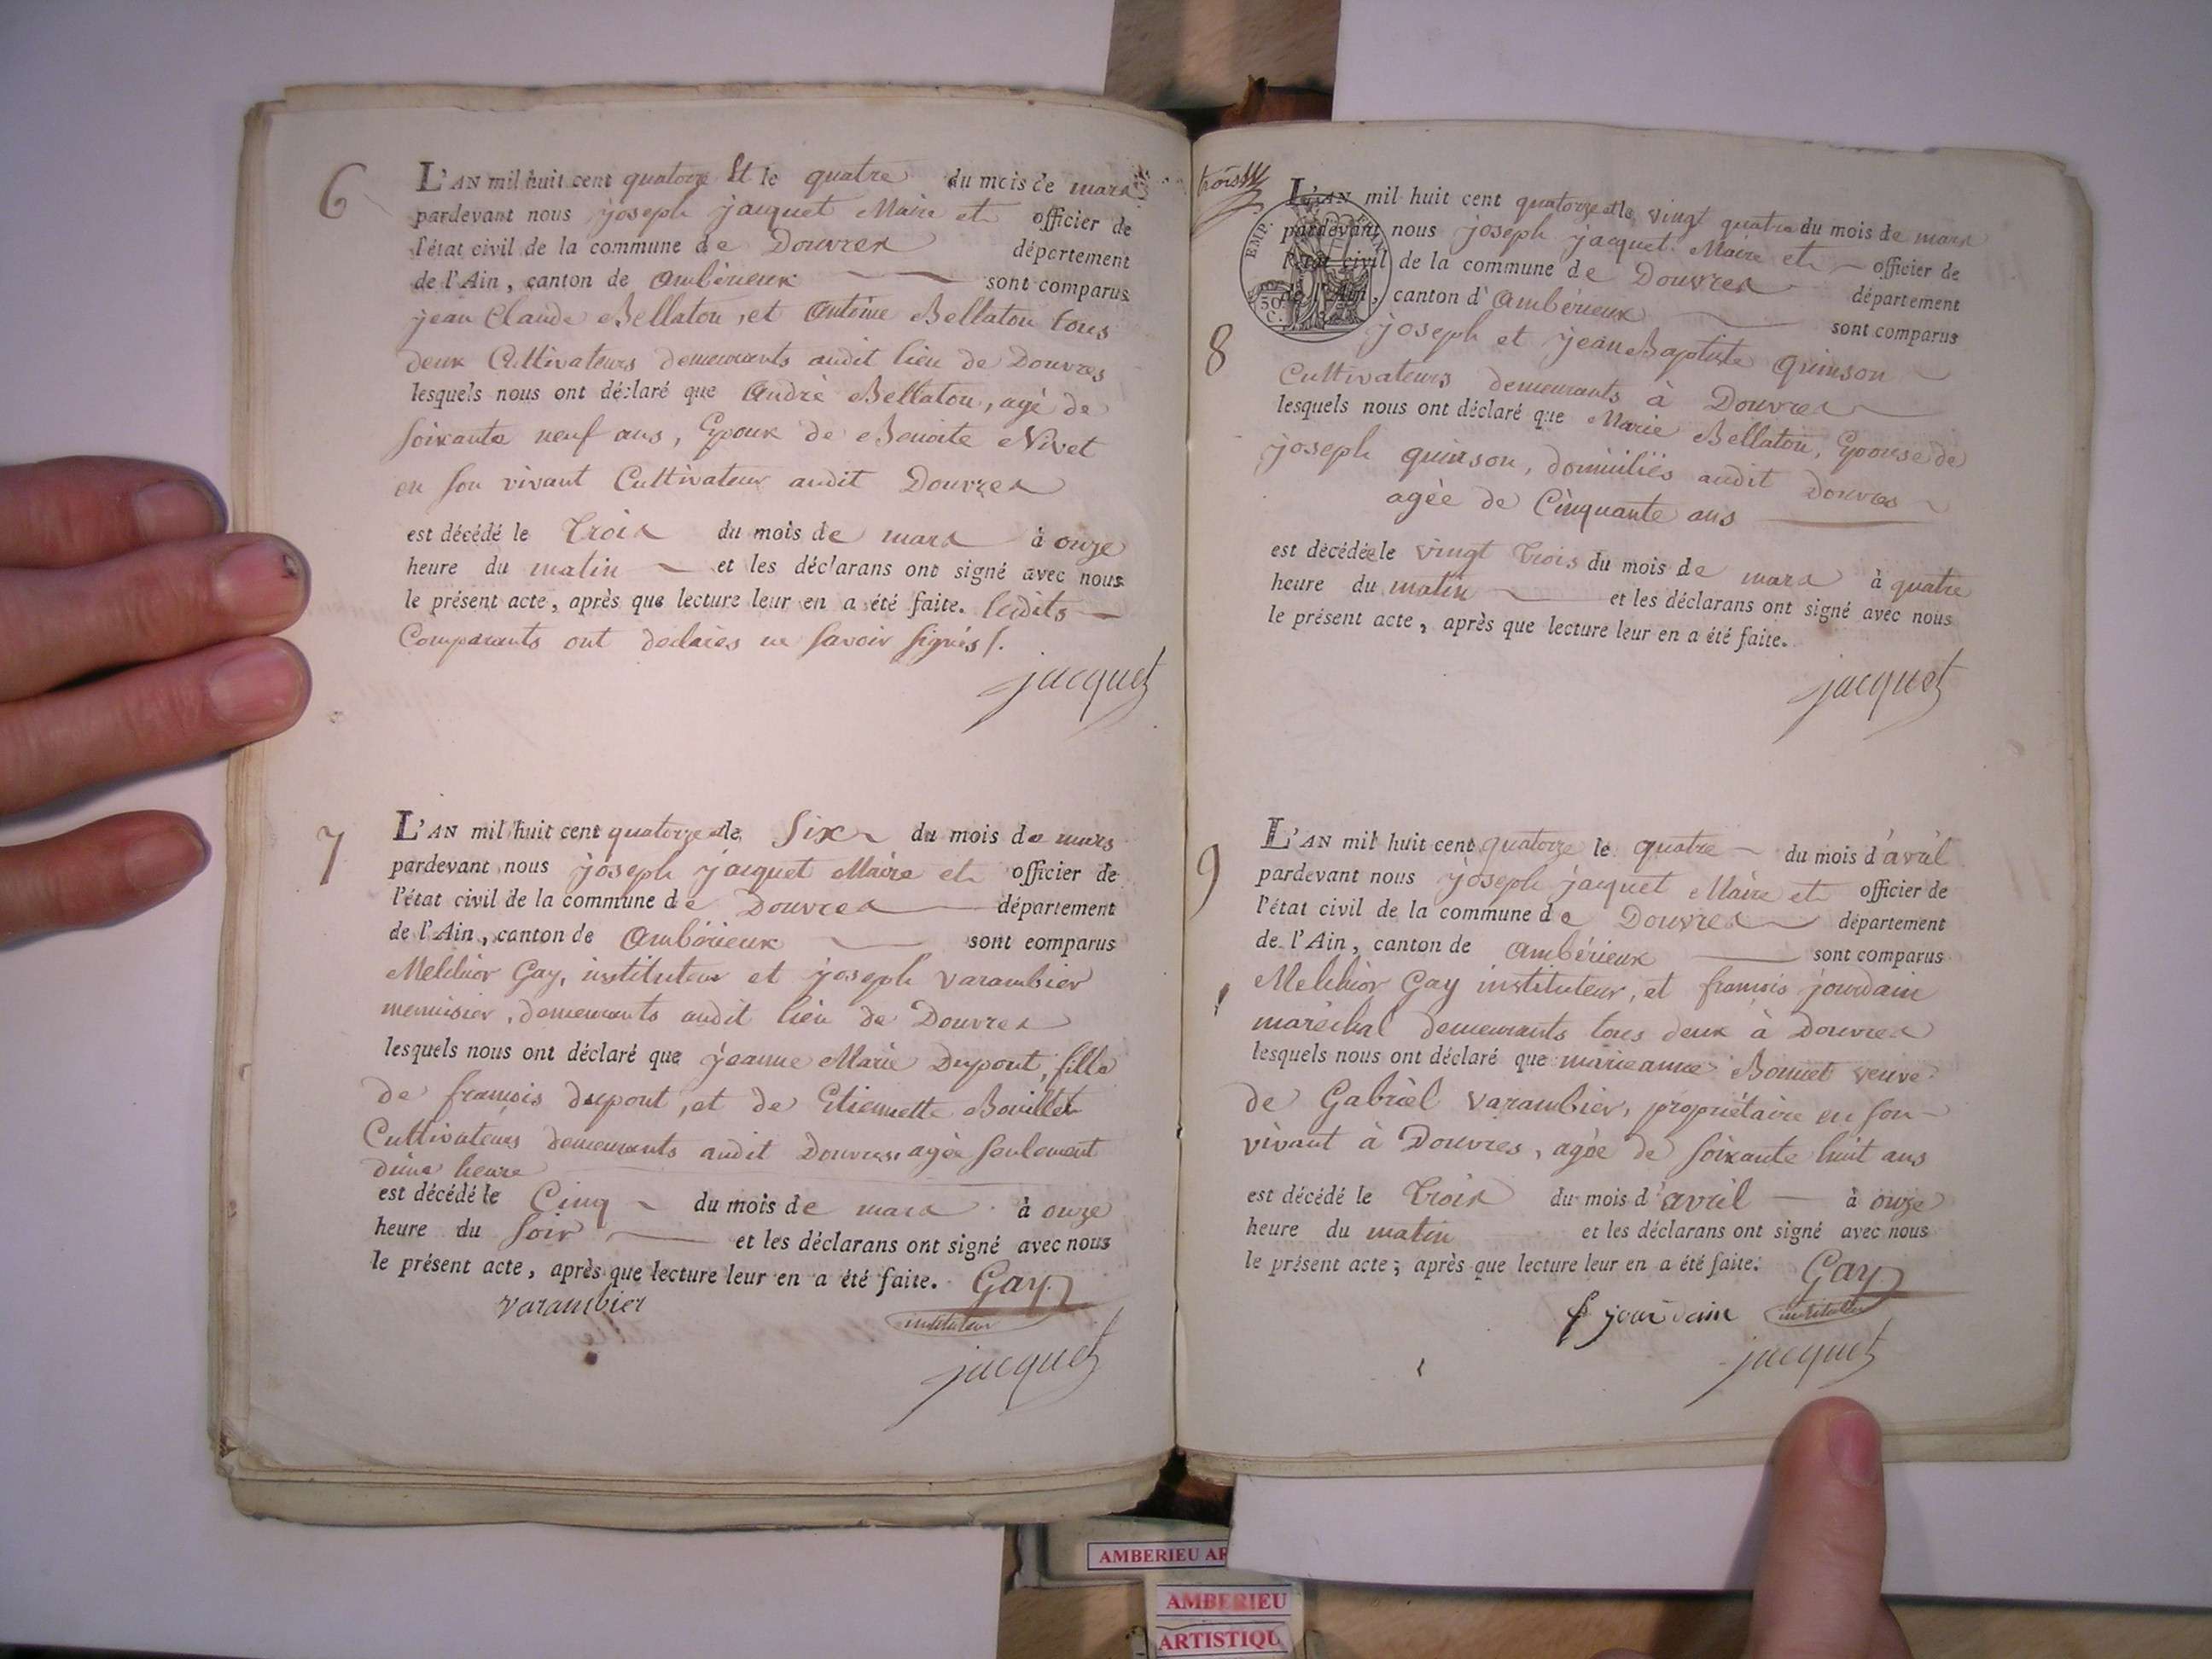 6
L'AN mil huit cent quatorze Et le quatre du mois de mars
pardevant nous joseph jacquet Maire et officier de
l'état civil de la commune de Douvres département
de l'Ain, canton de ambérieux sont comparus
jean Claude Bellaton, et antoine Bellaton tous
deux Cultivateurs demeurants audit lieu de Douvres
lesquels nous ont déclaré que andré Bellaton, agé de
soixante neuf ans, Epoux de Benoite Nivet
en son vivant Cultivateur audit Douvres
est décédé le trois du mois de mars à onze
heure du matin et les déclarans ont signé avec nous
le présent acte, après que lecture leur en a été faite. lesdits
Comparants ont declarés ne savoir signés /.
jacquet
7
L'AN mil huit cent quatorze et le Six du mois de mars
pardevant nous joseph jacquet Maire et officier de
l'état civil de la commune de Douvres département
de l'Ain, canton de ambérieux sont comparus
Melchior Gay, instituteur et joseph varambier
menuisier, demeurants audit lieu de Douvres
lesquels nous ont déclaré que jeanne Marie Dupont, fille
de françois dupont, et de Etiennette Bouillet
Cultivateurs demeurants audit Douvres, agée seulement
d'une heure
est décédé le Cinq du mois de mars à onze
heure du soir et les déclarans ont signé avec nous
le présent acte, après que lecture leur en a été faite. Gay
varambier instituteur
jacquet
trois
L'AN mil huit cent quatorze et le vingt quatre du mois de mars
pardevant nous joseph jacquet Maire et officier de
l'état civil de la commune de Douvres département
de l'Ain, canton d'ambérieux sont comparus
EMP.
50
C.
8
joseph et jean Baptiste quinson
Cultivateurs demeurants à Douvres
lesquels nous ont déclaré que Marie Bellaton, Epouse de
joseph quinson, domiciliés audit Douvres
agée de Cinquante ans
est décédée le vingt trois du mois de mars à quatre
heure du matin et les déclarans ont signé avec nous
le présent acte, après que lecture leur en a été faite.
jacquet
9
L'AN mil huit cent quatorze le quatre du mois d'avril
pardevant nous joseph jacquet Maire et officier de
l'état civil de la commune de Douvres département
de l'Ain, canton de ambérieux sont comparus
Melchior Gay instituteur, et françois jourdain
maréchal demeurants tous deux à Douvres
lesquels nous ont déclaré que marieanne Bonnet veuve
de Gabriel varambier, propriétaire en son
vivant à Douvres, agée de soixante huit ans
est décédé le trois du mois d'avril à onze
heure du matin et les déclarans ont signé avec nous
le présent acte, après que lecture leur en a été faite. Gay
f jourdain instituteur
jacquet
AMBERIEU AR
AMBERIEU
ARTISTIQU